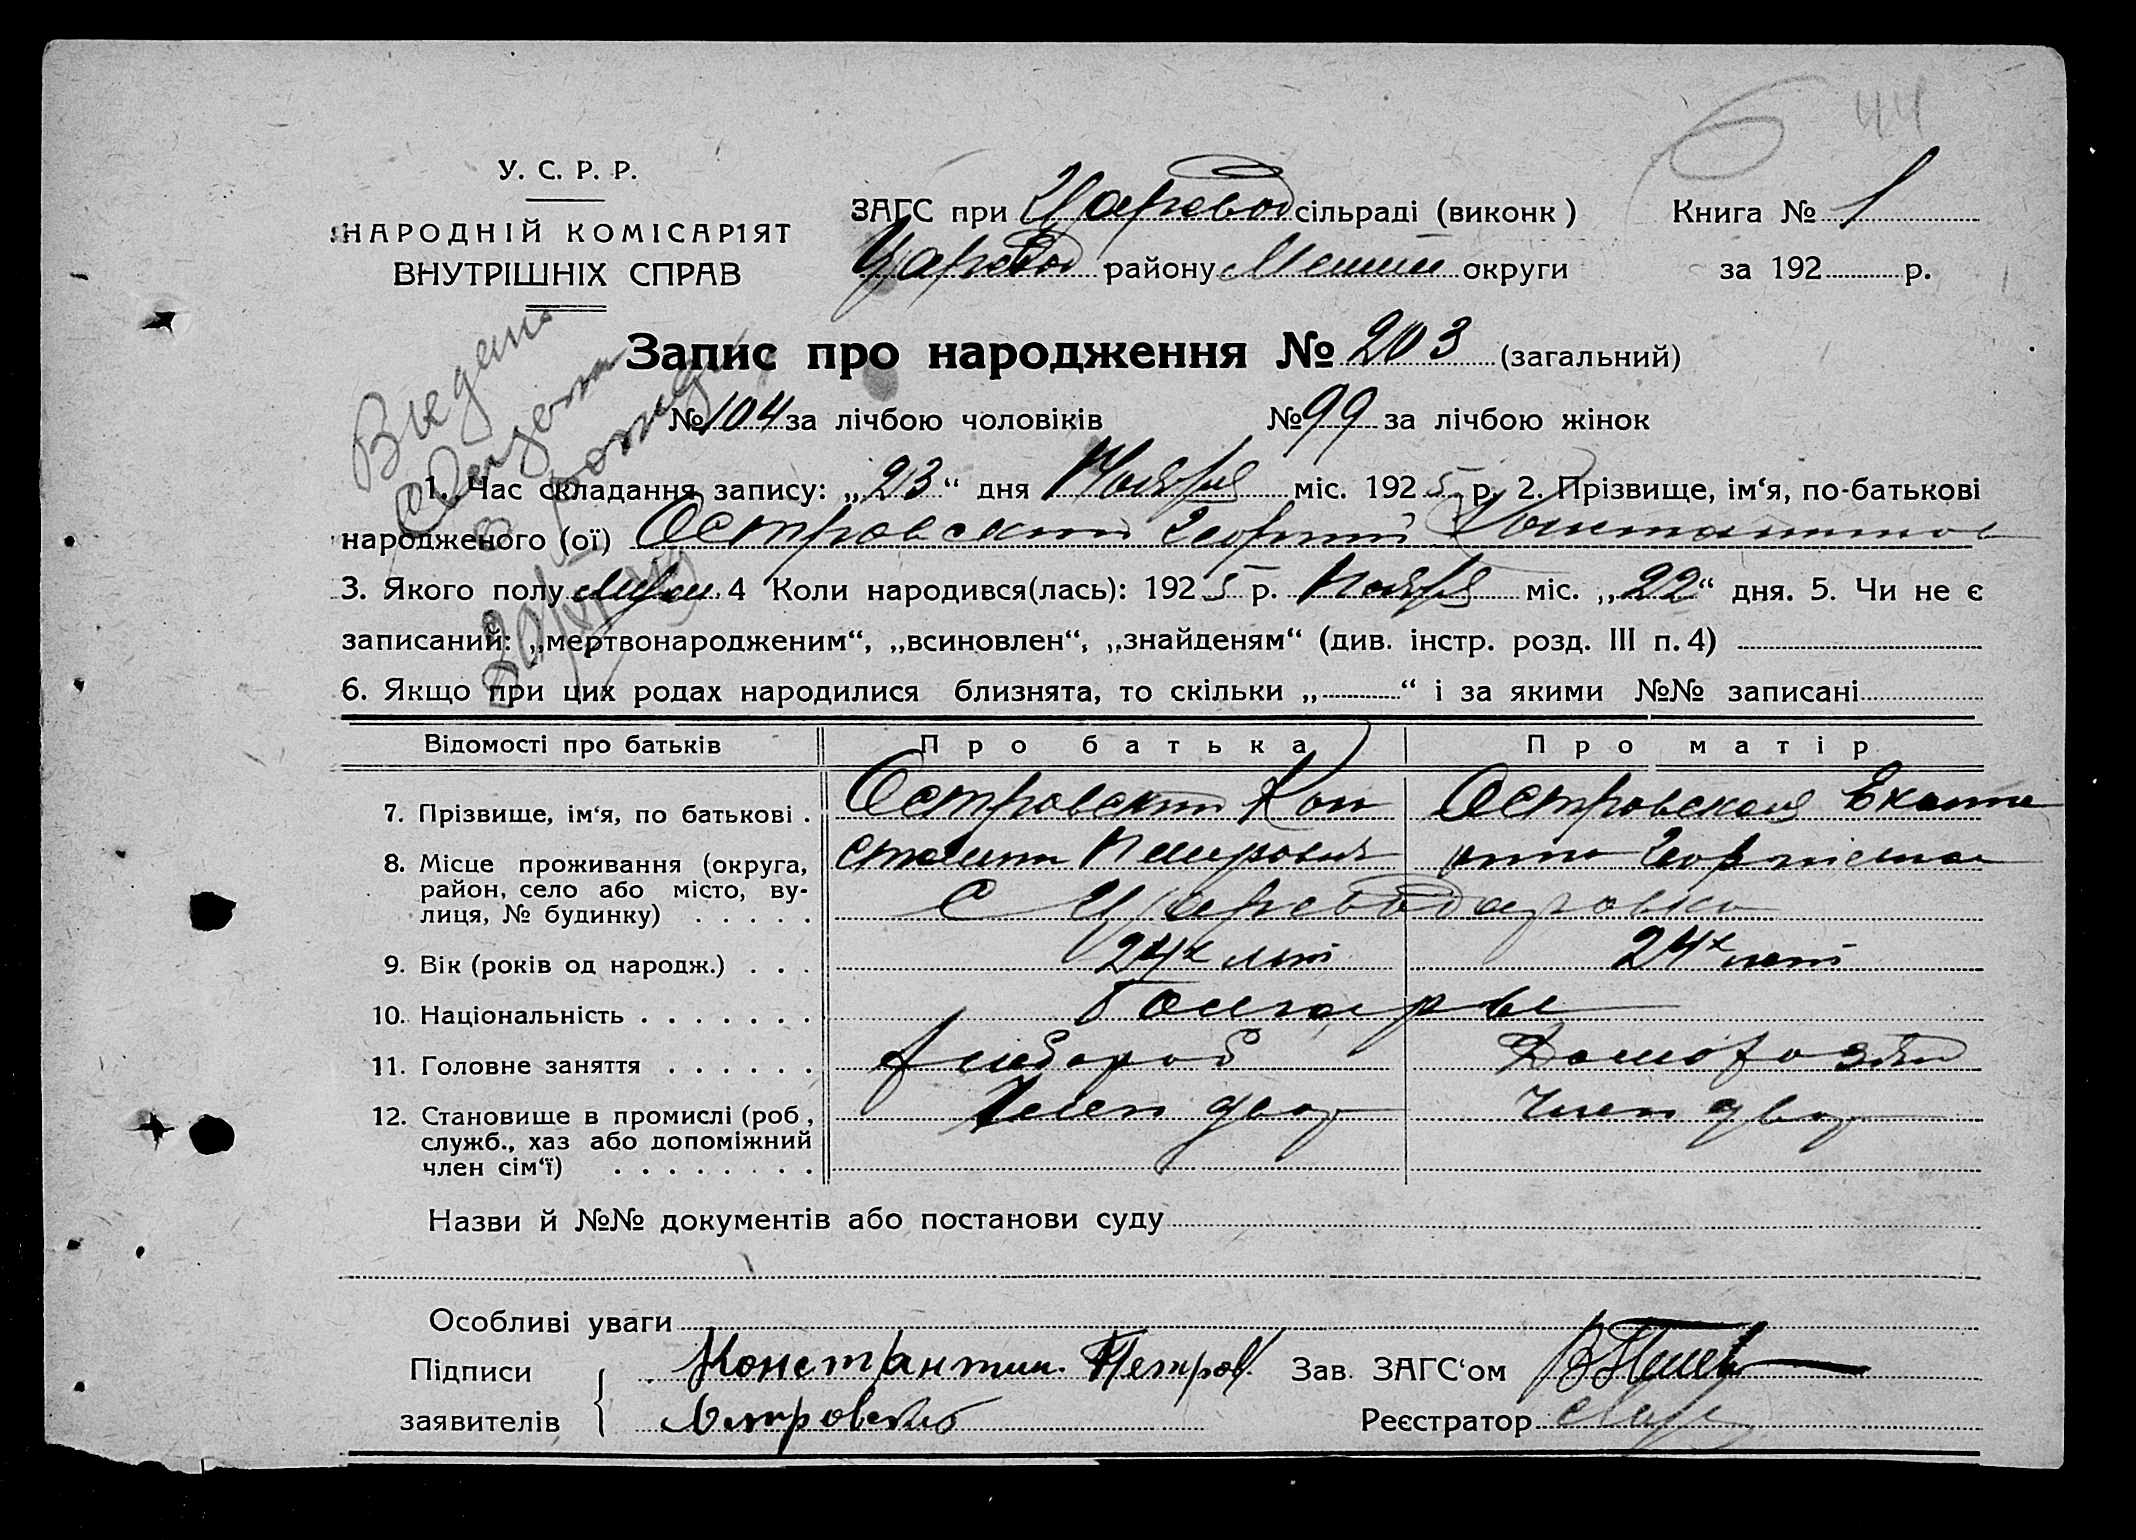 44
У. С. Р. Р.
НАРОДНІЙ КОМІСАРІЯТ
ВНУТРІШНІХ СПРАВ
ЗАГС при Царевод сільраді (виконк)
Книга № 1
Царевод району Мелит округи
за 192 р.
Запис про народження № 203 (загальний)
№ 104 за лічбою чоловіків № 99 за лічбою жінок
1. Час складання запису: „23“ дня Ноября міс. 1925 р. 2. Прізвище, ім‘я, по-батькові
народженого (ої) Островский Георгий Константинов
3. Якого полу муж. 4 Коли народився(лась): 1925 р. Ноября міс. „22“ дня. 5. Чи не є
записаний: „мертвонародженим“, „всиновлен“, „знайденям“ (див. інстр. розд. III п. 4)
6. Якщо при цих родах народилися близнята, то скільки „ “ і за якими №№ записані
Відомості про батьків Про батька Про матір
7. Прізвище, ім‘я, по батькові . Островский Кон Островская Екате
8. Місце проживання (округа, стантин Петрович рина Георгиевна
район, село або місто, ву-
лиця, № будинку) . . . . . С Царeводаровка
9. Вік (років од народж.) . . . 24х лет 24х лет
10. Національність . . . . . . . Болгары
11. Головне заняття . . . . . . Хлебороб Домохозяй
12. Становище в промислі (роб, Член двор Член двор
служб., хаз або допоміжний
член сім‘ї) . . . . . . . .
Назви й №№ документів або постанови суду
Особливі уваги
Підписи Константин. Петров. Зав. ЗАГС‘ом
заявителів Островский Реєстратор